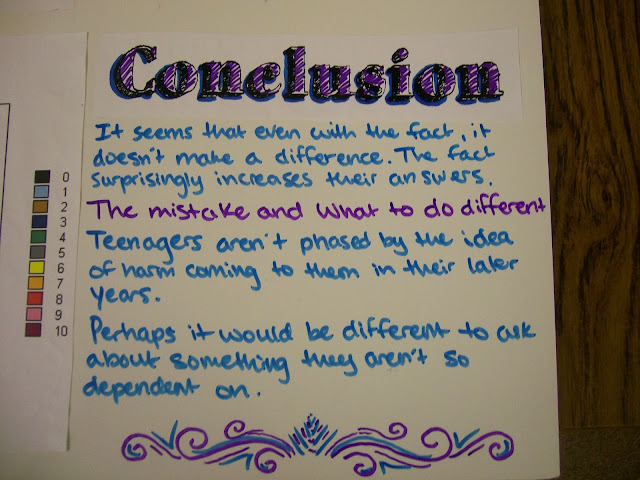 Conclusion
It seems that even with the fact, it
doesn't make a difference. The fact
surprisingly increases their answers.
The mistake and what to do different
Teenagers aren't phased by the idea
of harm coming to them in their later
years.
Perhaps it would be different to ask
about something they aren't so
dependent on.
0
1
2
3
4
5
6
7
8
9
10